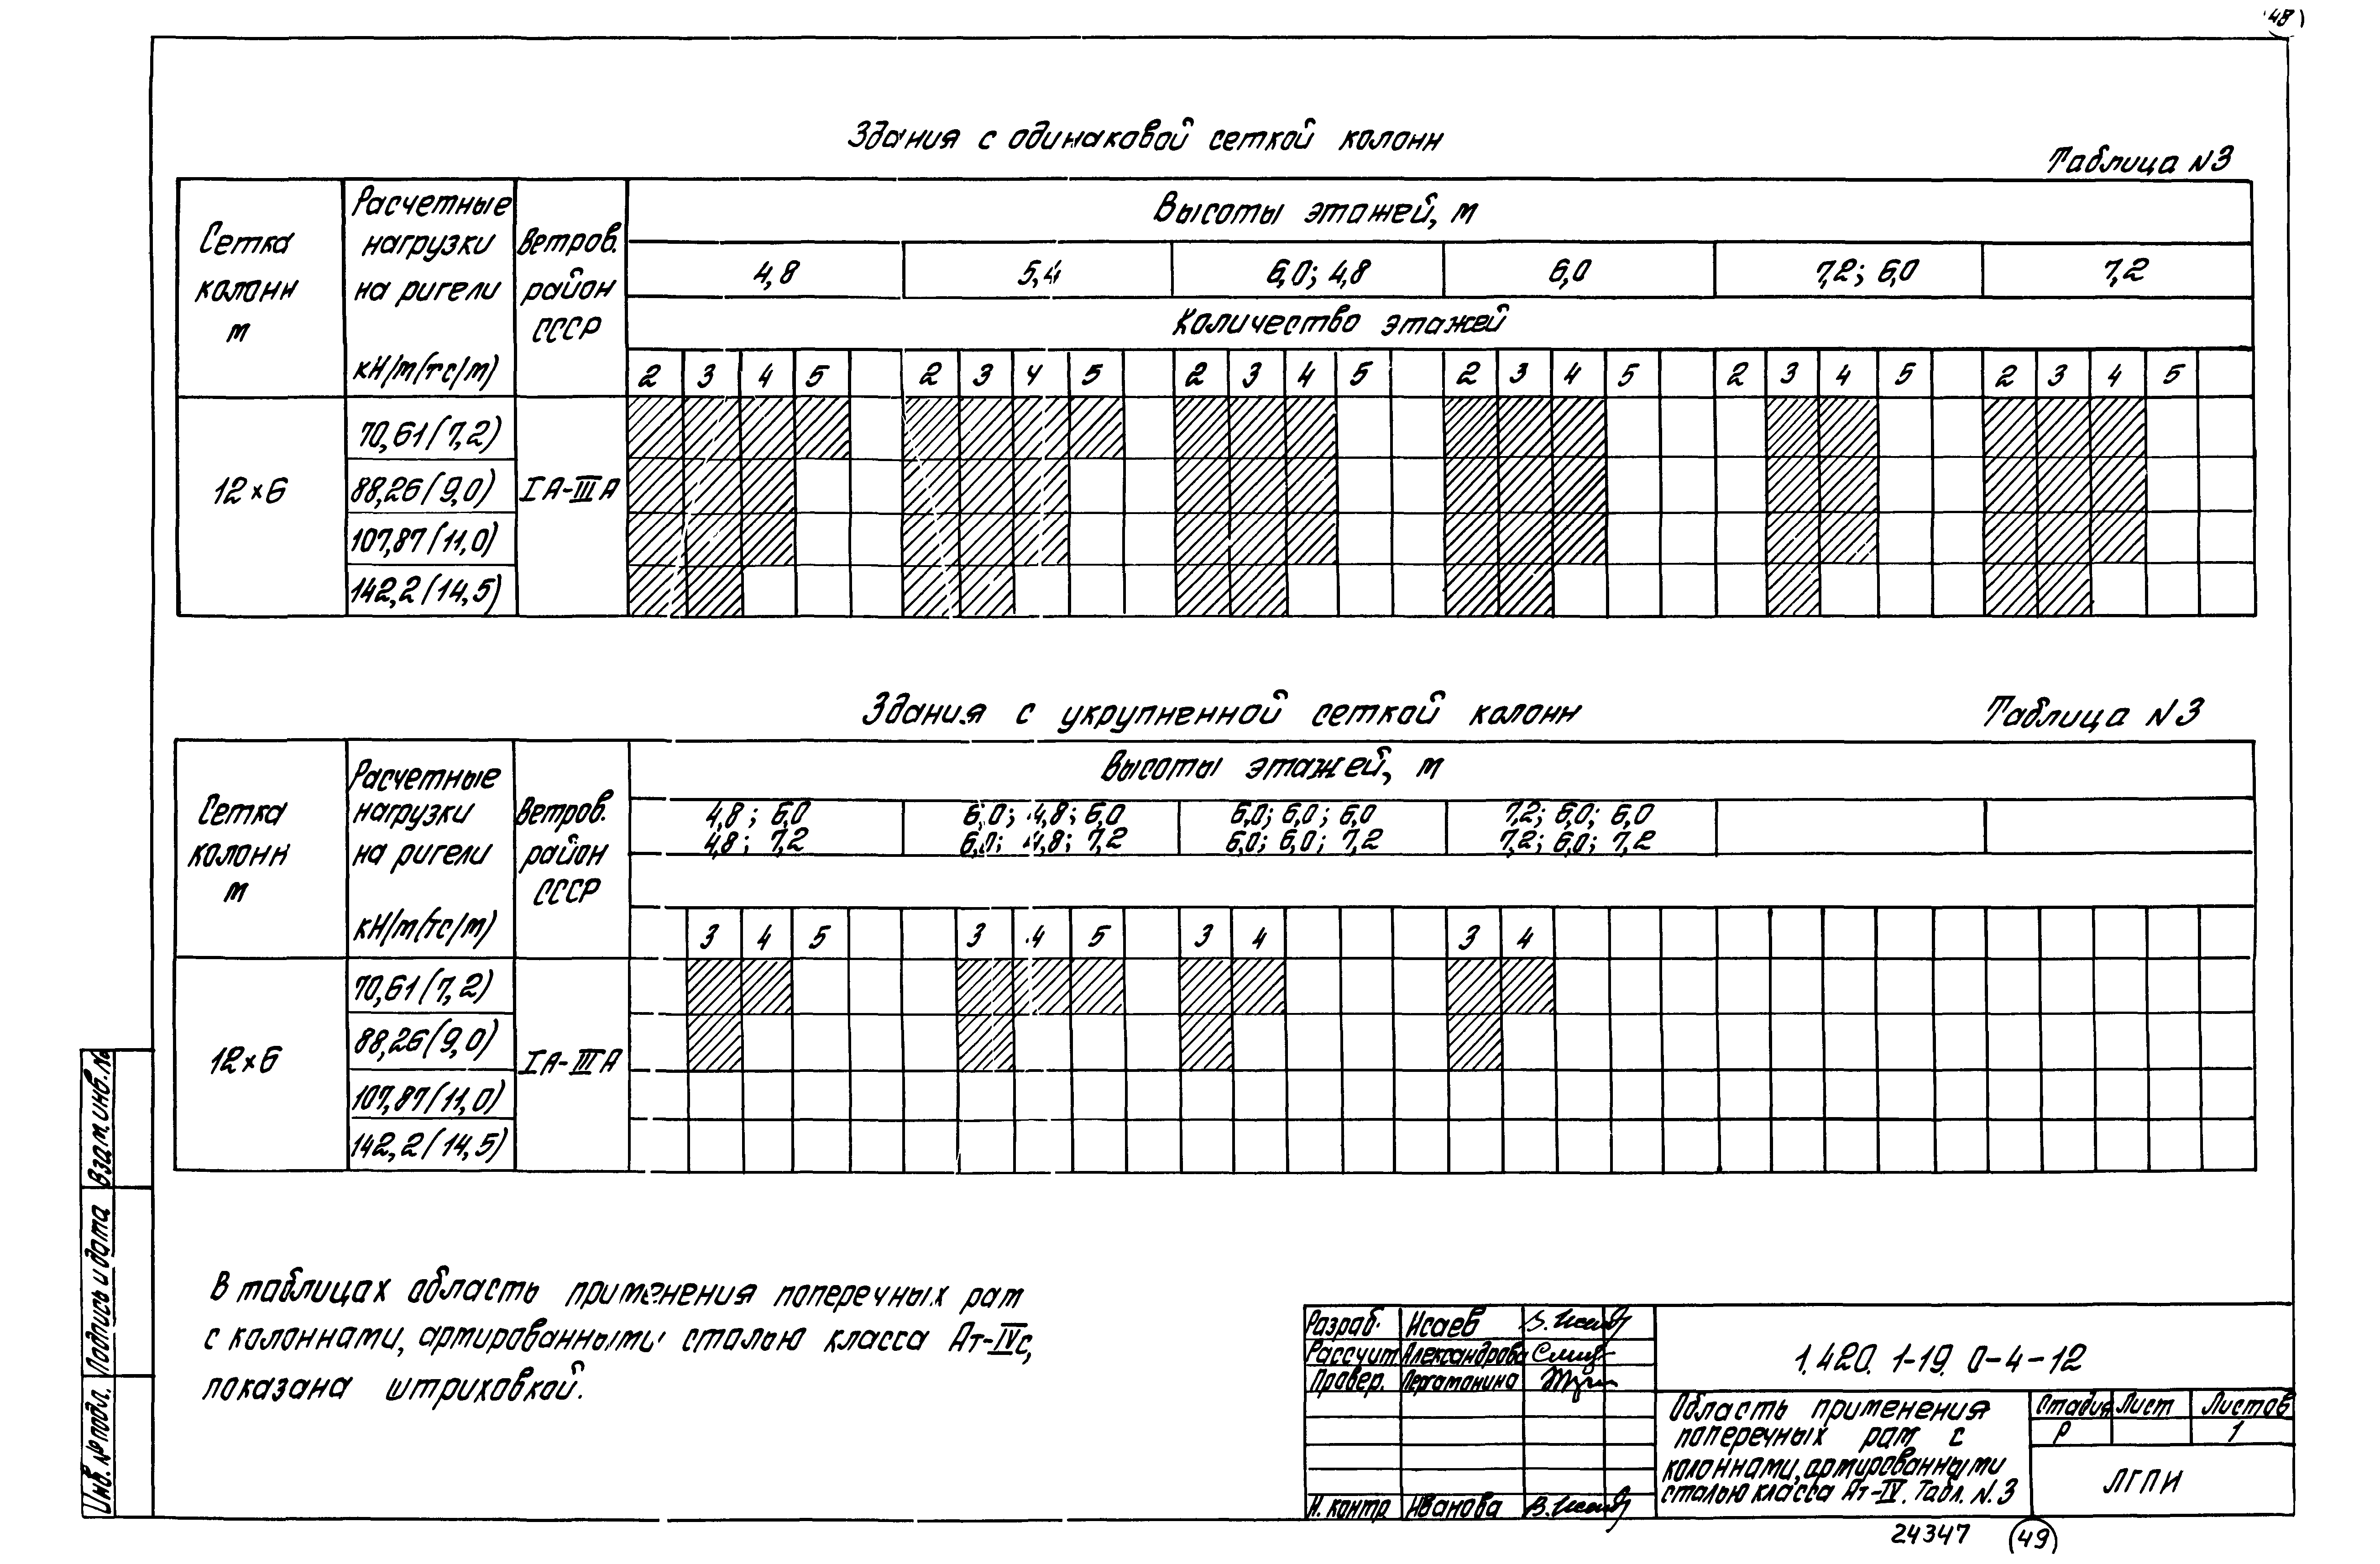 48)
Здания с одинаковой сеткой колонн
Таблица N3
Сетка колонн м
Расчетные нагрузки на ригели кН/м/(тс/м)
Ветров. район СССР
Высоты этажей, м
4,8 5,4 6,0; 4,8 6,0 7,2; 6,0 7,2
Количество этажей
2 3 4 5 2 3 4 5 2 3 4 5 2 3 4 5 2 3 4 5 2 3 4 5
12×6
70,61(7,2)
88,26(9,0)
107,87(11,0)
142,2(14,5)
IА-IIIА
Здания с укрупненной сеткой колонн
Таблица N3
Сетка колонн м
Расчетные нагрузки на ригели кН/м/(тс/м)
Ветров. район СССР
Высоты этажей, м
4,8; 6,0 6,0; 4,8; 6,0 6,0; 6,0; 6,0 7,2; 6,0; 6,0
4,8; 7,2 6,0; 4,8; 7,2 6,0; 6,0; 7,2 7,2; 6,0; 7,2
3 4 5 3 4 5 3 4 3 4
12×6
70,61(7,2)
88,26(9,0)
107,87(11,0)
142,2(14,5)
IА-IIIА
В таблицах область применения поперечных рам
с колоннами, армированными сталью класса Ат-IVс,
показана штриховкой.
Взам. инв. №
Подпись и дата
Инв. № подл.
Разраб. Исаев
Рассчит Александрова
Провер. Пергамонина
Н. контр Иванова
1.420.1-19.0-4-12
Область применения
поперечных рам с
колоннами, армированными
сталью класса Ат-IV. Табл. N.3
Стадия Лист Листов
Р 1
ЛГПИ
24347 (49)